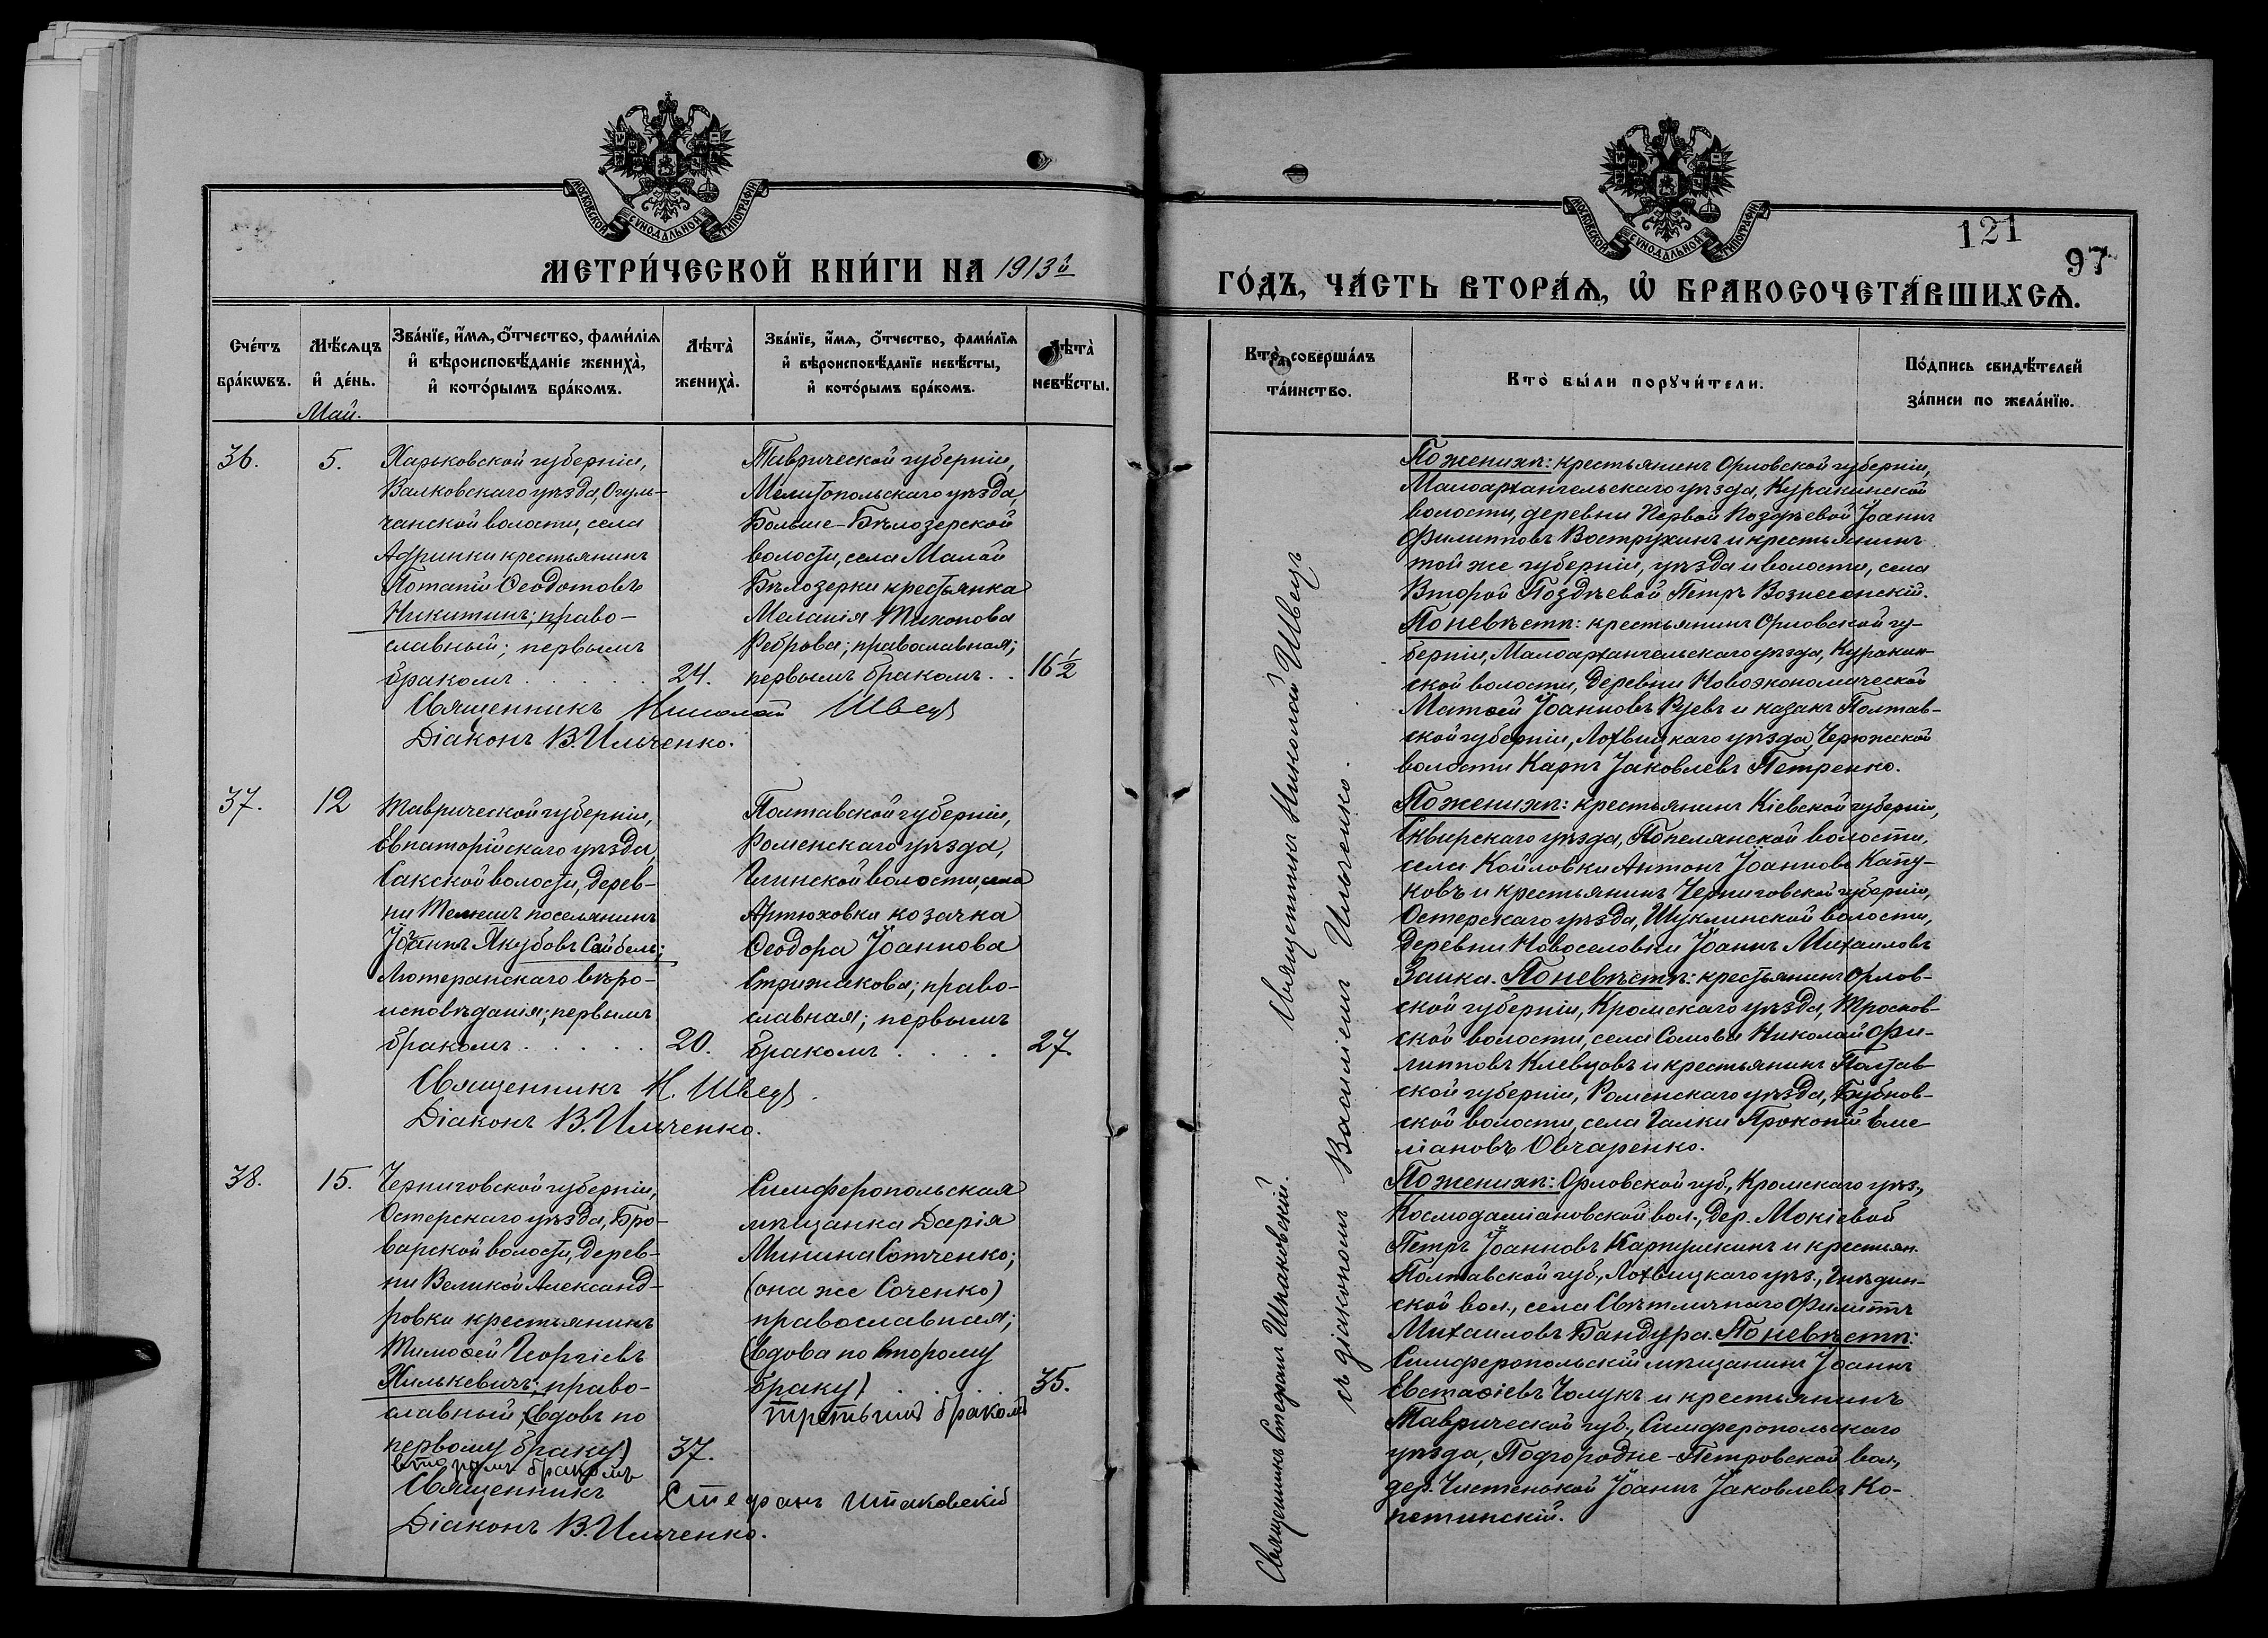 МОСКОВСКОЙ СѴНОДАЛЬНОЙ ТИПОГРАФІИ
МЕТРИ́ЧЕСКОЙ КНИ́ГИ НА 1913й
Сче́тъ бра́кѡвъ.
Мѣ́сяцъ и҆ де́нь.
Зва́нїе, и҆́мѧ, ѻ҆́тчество, фами́лїѧ
и҆ вѣроисповѣ́данїе жениха̀,
и҆ кото́рымъ бра́комъ.
Лѣта̀ жениха̀.
Зва́нїе, и҆́мѧ, ѻ҆́тчество, фами́лїѧ
и҆ вѣроисповѣ́данїе невѣ́сты,
и҆ кото́рымъ бра́комъ.
Лѣта̀ невѣ́сты.
Май.
36.
5.
Харьковской губерніи,
Валковскаго уѣзда, Огуль-
чанской волости, села
Адринки крестьянинъ
Потапій Ѳеодотовъ
Никитинъ; право-
славный; первымъ
бракомъ . . . . .
24.
Таврической губерніи,
Мелитопольскаго уѣзда,
Больше-Бѣлозерской
волости, села Малой
Бѣлозерки крестьянка
Меланія Тихонова
Реброва; православная;
первымъ бракомъ . .
16 ½
Священникъ Николай Швецъ
Діаконъ В. Ильченко.
37.
12
Таврической губерніи,
Евпаторійскаго уѣзда,
Сакской волости, дерев-
ни поселянинъ
Іоаннъ Якубовъ Сайбель;
Лютеранскаго вѣро-
исповѣданія; первымъ
бракомъ . . . . .
20.
Полтавской губерніи,
Роменскаго уѣзда,
Глинской волости, села
Артюховки козачка
Ѳеодора Іоаннова
Стрижакова; право-
славная; первымъ
бракомъ . . . .
27.
Священникъ Н. Швецъ.
Діаконъ В. Ильченко.
38.
15.
Черниговской губерніи,
Остерскаго уѣзда, Бро-
варской волости, дерев-
ни Великой Александ-
ровки крестьянинъ
Тимоѳей Георгіевъ
Хилькевичъ; право-
славный; (вдовъ по
первому браку)
вторымъ бракомъ
37.
Симферопольская
мѣщанка Дарія
Минина Сотченко;
(она же Соченко)
православная;
(вдова по второму
браку) . . . .
третьимъ бракомъ
35.
Священникъ Стефанъ Шпаковскій
Діаконъ В. Ильченко.
МОСКОВСКОЙ СѴНОДАЛЬНОЙ ТИПОГРАФІИ
121
97
ГО́ДЪ, ЧА́СТЬ ВТОРА́Ѧ, Ѡ҆ БРАКОСОЧЕТА́ВШИХСѦ.
Кто̀ соверша́лъ
та́инство.
Кто̀ бы́ли порꙋчи́тели.
По́дпись свидѣ́телей
за́писи по жела́нїю.
Священникъ Николай Швецъ
съ діакономъ Василіемъ Ильченко.
Священникъ Стефанъ Шпаковскій.
По женихѣ: крестьянинъ Орловской губерніи,
Малоархангельскаго уѣзда, Куракинской
волости, деревни Первой Поздѣевой Іоаннъ
Филипповъ Вострухинъ и крестьянинъ
той же губерніи, уѣзда и волости, села
Второй Поздѣевой Петръ Вознесенскій.
По невѣстѣ: крестьянинъ Орловской гу-
берніи, Малоархангельскаго уѣзда, Куракин-
ской волости, деревни Новоэкономической
Матѳей Іоанновъ Руевъ и казакъ Полтав-
ской губерніи, Лохвицкаго уѣзда,
волости Карпъ Іаковлевъ Петренко.
По женихѣ: крестьянинъ Кіевской губерніи,
Сквирскаго уѣзда, Попелянской волости,
села Койловки Антонъ Іоанновъ Капу-
ковъ и крестьянинъ Черниговской губерніи,
Остерскаго уѣзда, волости,
деревни Новоселовки Іоаннъ Михаиловъ
Заика. По невѣстѣ: крестьянинъ Орлов-
ской губерніи, Кромскаго уѣзда, Троснов-
ской волости, села Сомова Николай Фи-
липповъ Клевцовъ и крестьянинъ Полтав-
ской губерніи, Роменскаго уѣзда, Бубнов-
ской волости, села Галки Прокопій Еме-
ліановъ Овчаренко.
По женихѣ: Орловской губ., Кромскаго уѣз.,
Космодаміановской вол., дер. Мокіевой
Петръ Іоанновъ Карпушкинъ и крестьян.
Полтавской губ., Лохвицкаго уѣз., Гнѣдин-
ской вол., села Свѣтличнаго Филиппъ
Михаиловъ Бандура. По невѣстѣ:
Симферопольскій мѣщанинъ Іоаннъ
Евстаѳіевъ Чолукъ и крестьянинъ
Таврической губ., Симферопольскаго
уѣзда, Подгородне-Петровской вол.,
дер. Чистенькой Іоаннъ Іаковлевъ Ко-
петинскій.